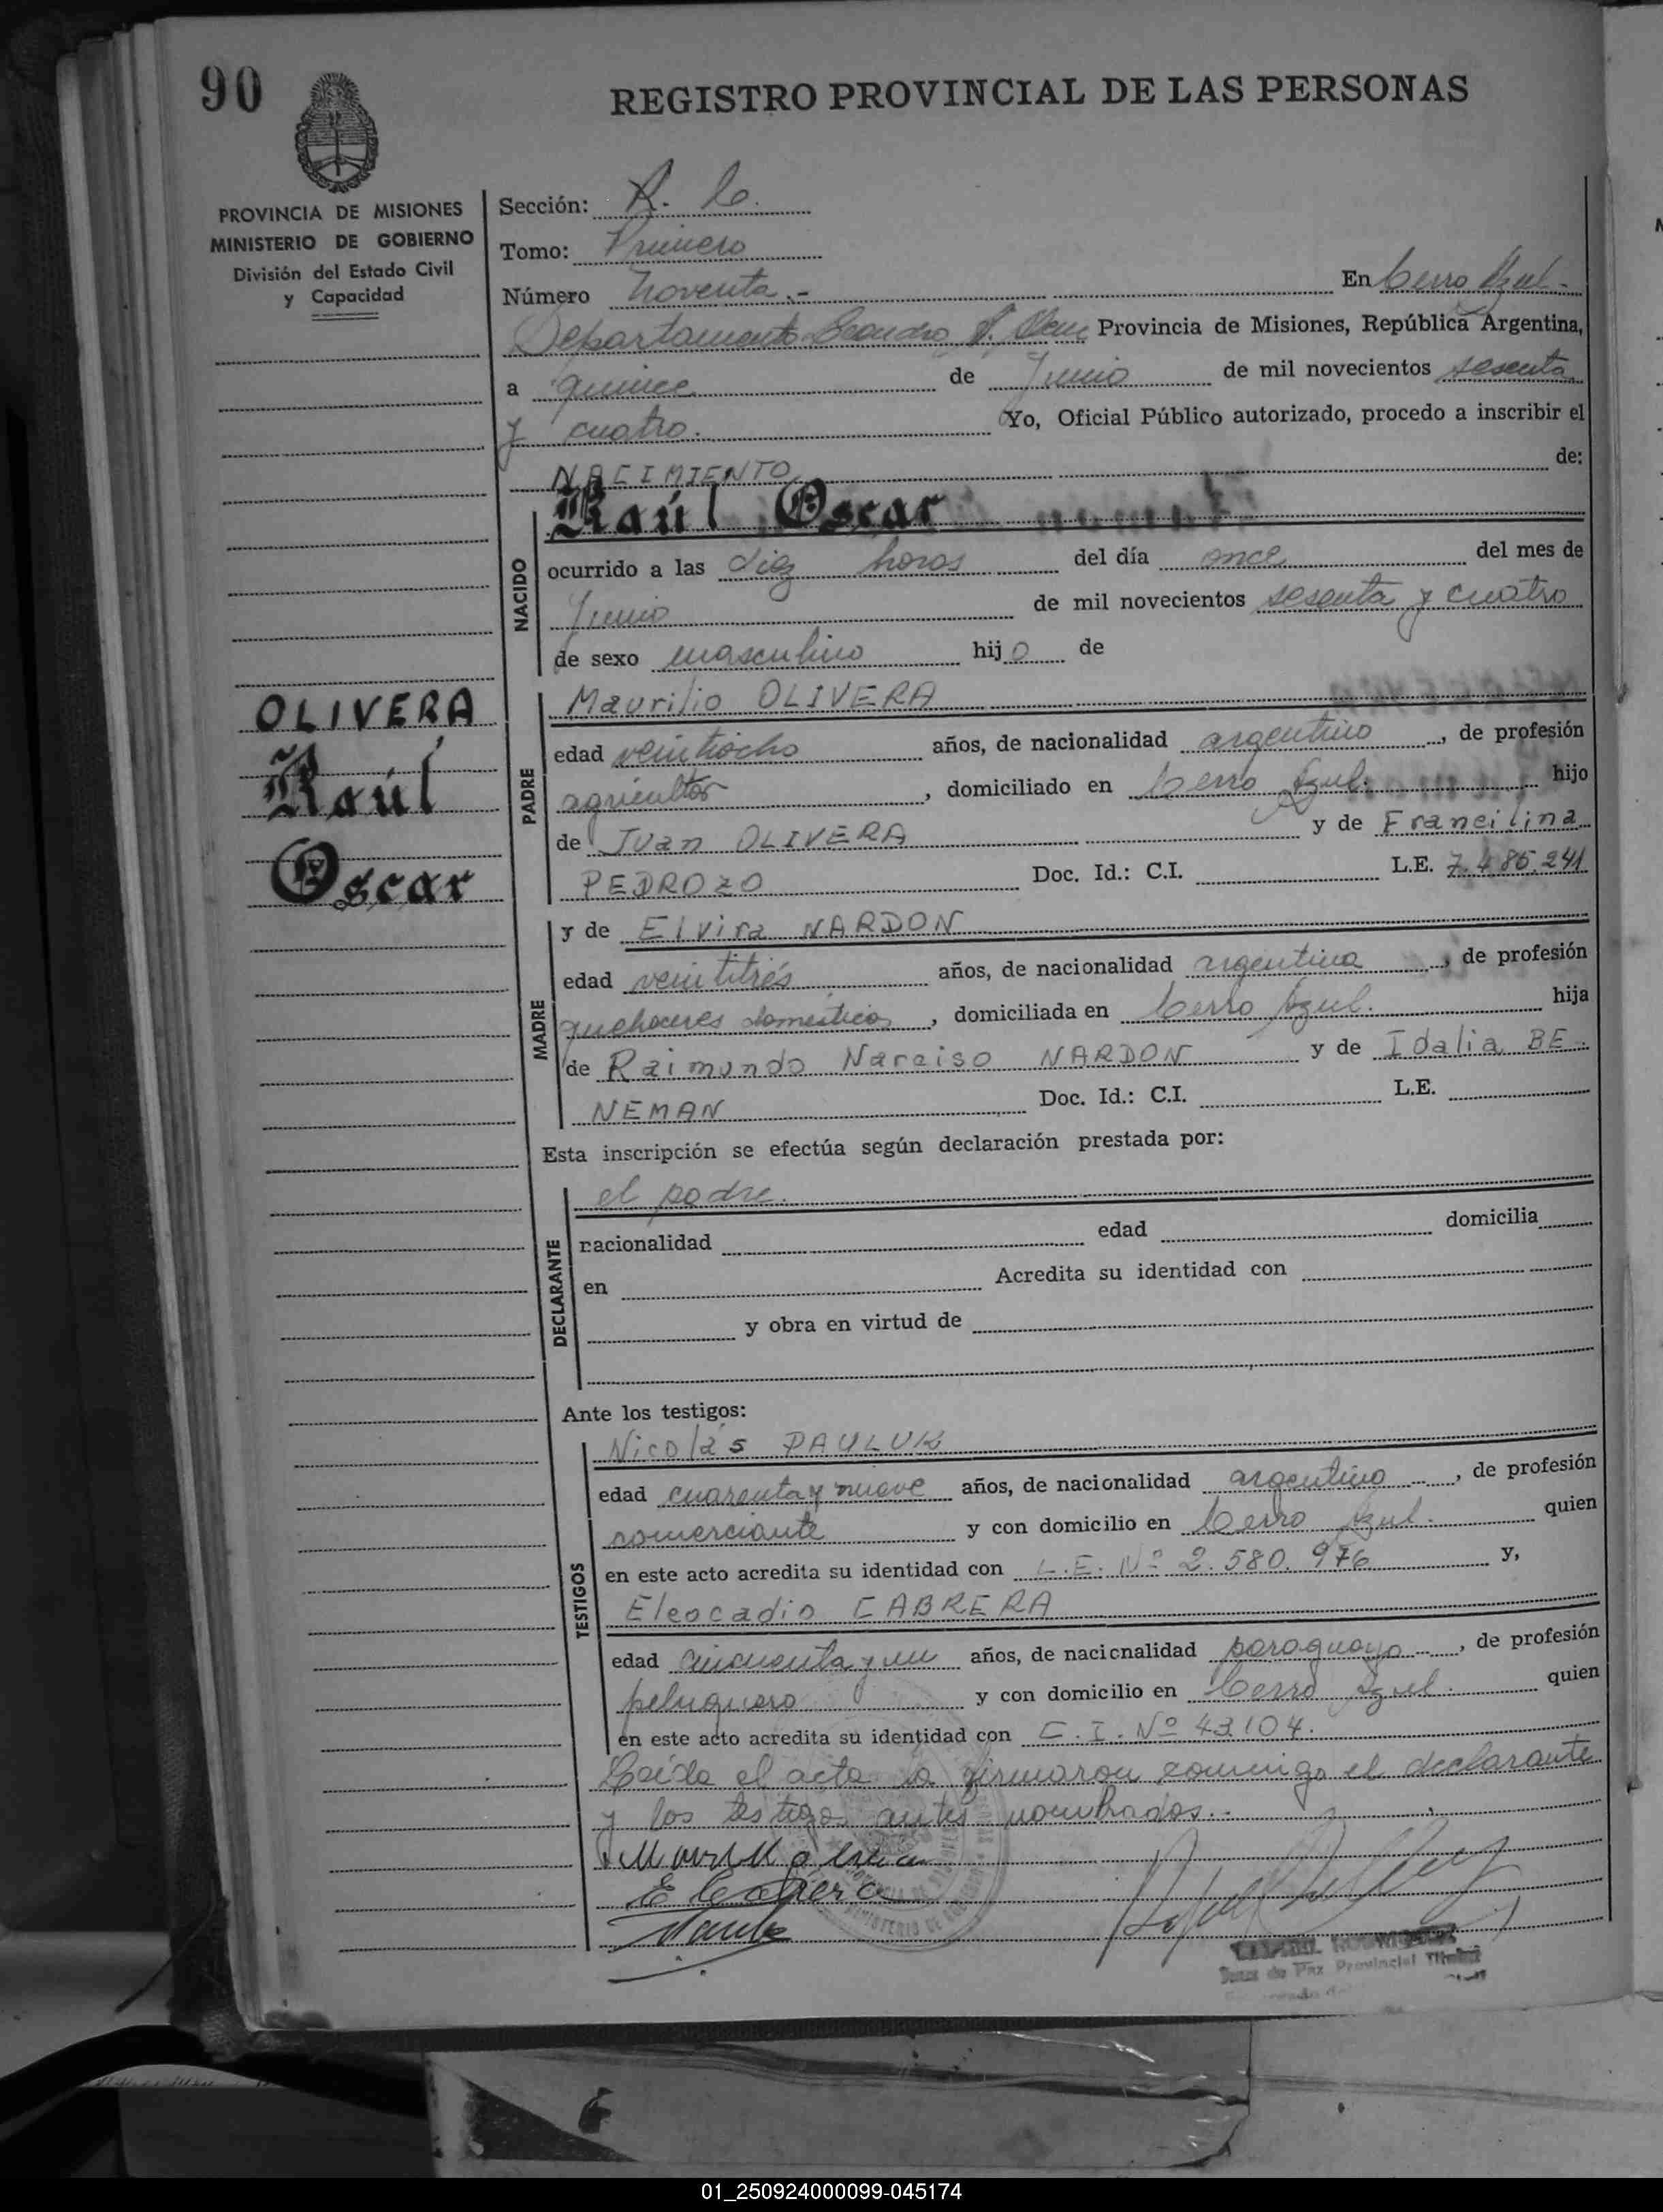 90
REGISTRO PROVINCIAL DE LAS PERSONAS
PROVINCIA DE MISIONES
MINISTERIO DE GOBIERNO
División del Estado Civil
y Capacidad
Sección:
Tomo: Primero
Número Noventa.- En Cerro Azul.-
Departamento Leandro N. Alem Provincia de Misiones, República Argentina,
a quince de Junio de mil novecientos sesenta
y cuatro. Yo, Oficial Público autorizado, procedo a inscribir el
NACIMIENTO de:
Raúl Oscar
NACIDO
ocurrido a las diez horas del día once del mes de
Junio de mil novecientos sesenta y cuatro
de sexo masculino hijo de
OLIVERA
Raúl
Oscar
PADRE
Maurilio OLIVERA
edad veintiocho años, de nacionalidad argentino, de profesión
agricultor, domiciliado en Cerro Azul. hijo
de Juan OLIVERA y de Francilina
PEDROZO Doc. Id.: C.I. L.E. 7.485.241
MADRE
y de Elvira NARDON
edad veintitrés años, de nacionalidad argentina, de profesión
quehaceres domésticos, domiciliada en Cerro Azul. hija
de Raimundo Narciso NARDON y de Idalia BE-
NEMAN Doc. Id.: C.I. L.E.
Esta inscripción se efectúa según declaración prestada por:
DECLARANTE
el padre.
nacionalidad edad domicilia
en Acredita su identidad con
y obra en virtud de
Ante los testigos:
TESTIGOS
Nicolás PAULUK
edad cuarenta y nueve años, de nacionalidad argentino, de profesión
comerciante y con domicilio en Cerro Azul. quien
en este acto acredita su identidad con L.E. Nº 2.580.976 y,
Eleocadio CABRERA
edad cincuenta y un años, de nacionalidad paraguayo, de profesión
peluquero y con domicilio en Cerro Azul. quien
en este acto acredita su identidad con C.I. Nº 43104.
Leída el acta la firmaron conmigo el declarante
y los testigos antes nombrados.-
E Cabrera
Juez de Paz Provincial Titular
01_250924000099-045174